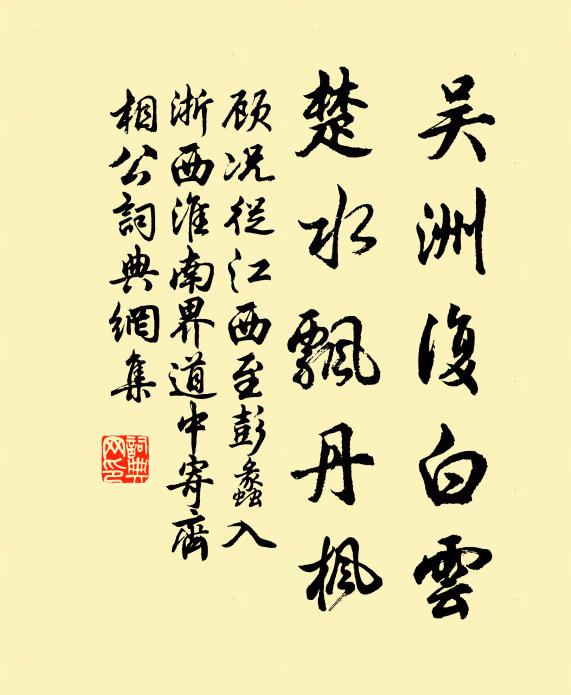 吴洲復白雲
楚水飄丹楓
顾况從江西至彭蠡入
淅西淮南界道中寄齊
相公詞典網集
詞典网印